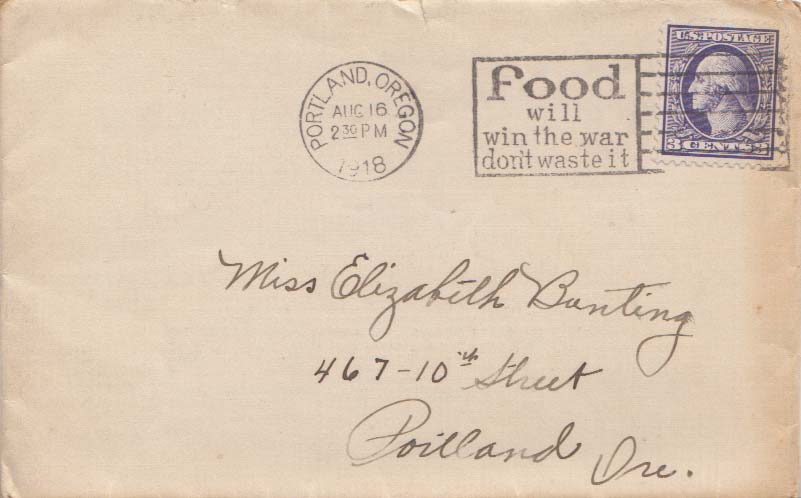 PORTLAND, OREGON
AUG 16
2 30 PM
1918
Food
will
win the war
don't waste it
U.S. POSTAGE
3 CENTS 3
Miss Elizabeth Bunting
467-10th Street
Portland Ore.